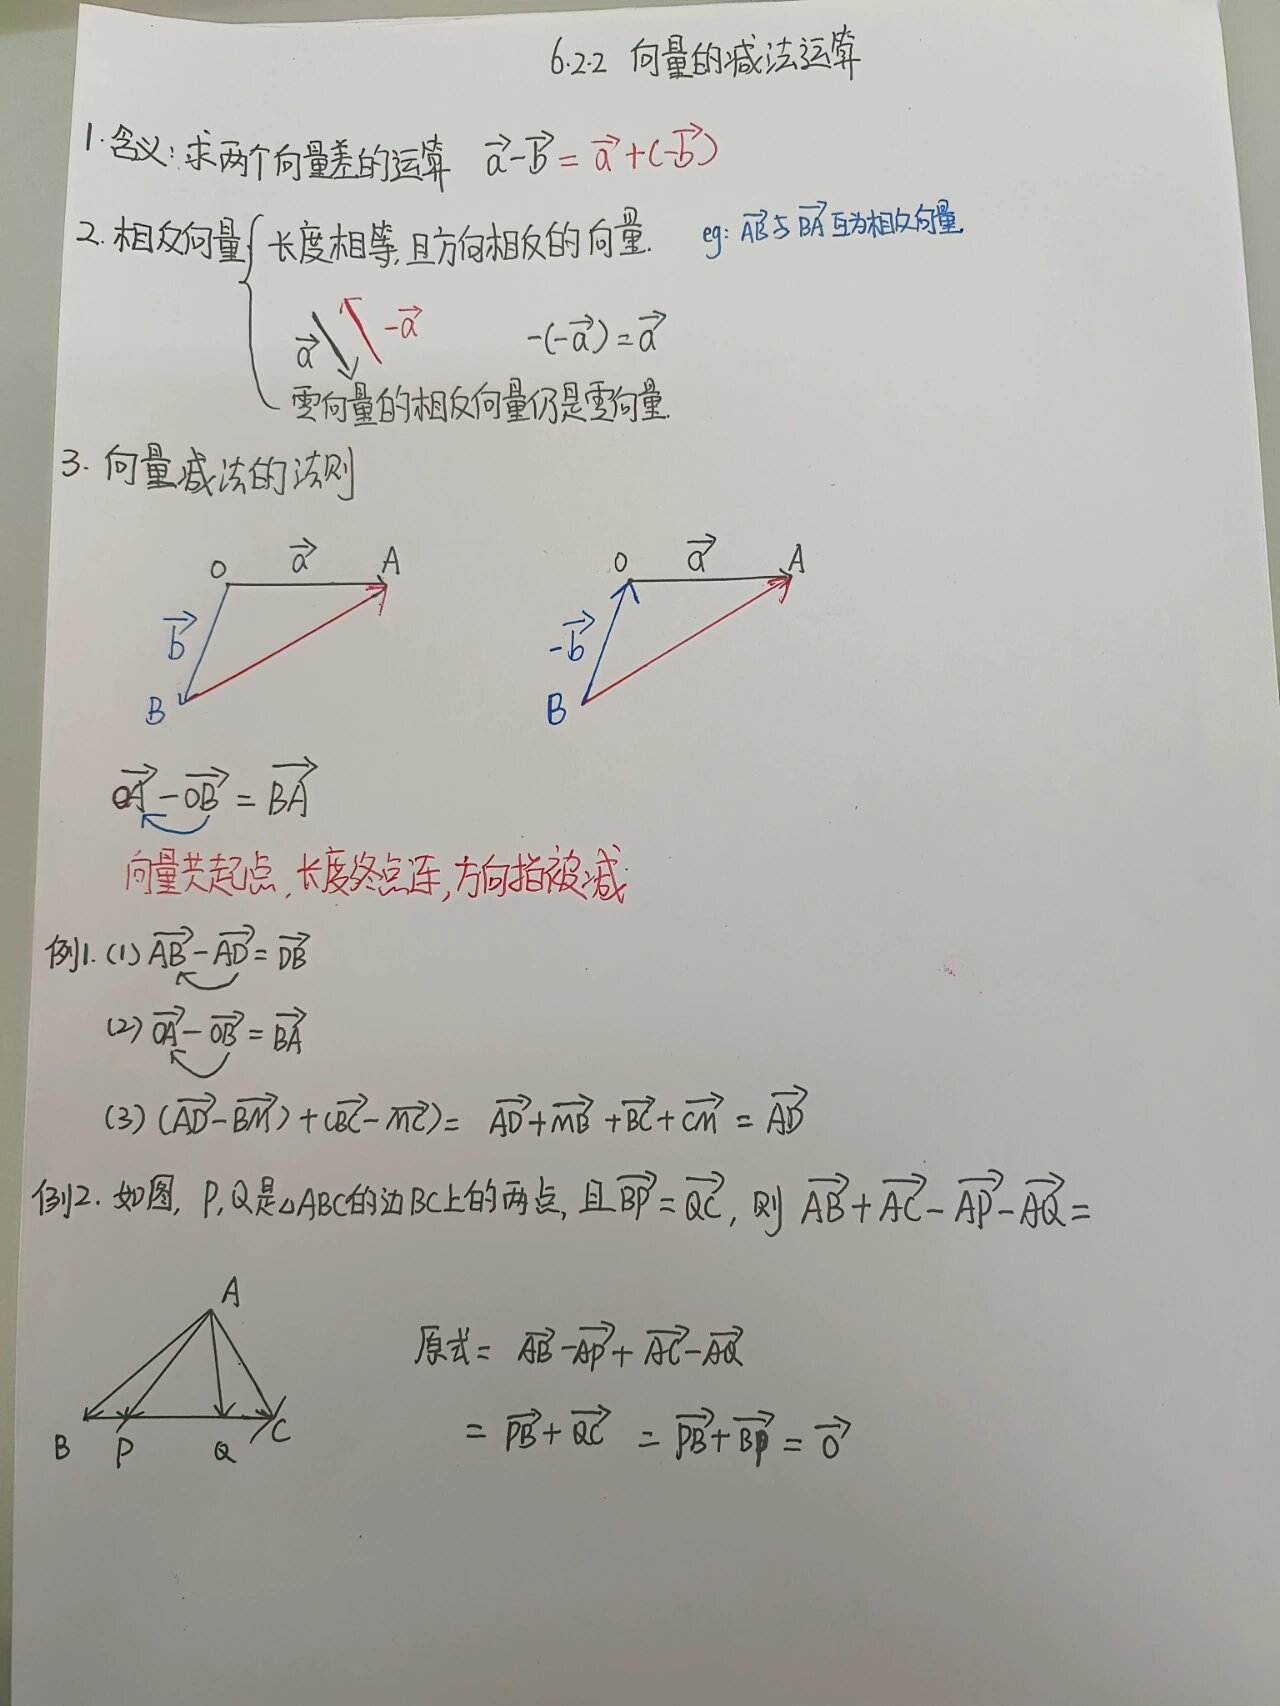 6.2.2 向量的减法运算
1. 含义: 求两个向量差的运算 $\vec{a}-\vec{b}=\vec{a}+(-\vec{b})$
2. 相反向量 { 长度相等, 且方向相反的向量. eg: $\overrightarrow{AB}$与$\overrightarrow{BA}$互为相反向量.
$\vec{a}$ $-\vec{a}$ $-(-\vec{a})=\vec{a}$
零向量的相反向量仍是零向量.
3. 向量减法的法则
O $\vec{a}$ A O $\vec{a}$ A
$\vec{b}$ $-\vec{b}$
B B
$\overrightarrow{OA}-\overrightarrow{OB}=\overrightarrow{BA}$
向量共起点, 长度终点连, 方向指被减.
例1. (1) $\overrightarrow{AB}-\overrightarrow{AD}=\overrightarrow{DB}$
(2) $\overrightarrow{OA}-\overrightarrow{OB}=\overrightarrow{BA}$
(3) $(\overrightarrow{AD}-\overrightarrow{BM})+(\overrightarrow{BC}-\overrightarrow{MC})=\overrightarrow{AD}+\overrightarrow{MB}+\overrightarrow{BC}+\overrightarrow{CM}=\overrightarrow{AD}$
例2. 如图, P, Q是△ABC的边BC上的两点, 且$\overrightarrow{BP}=\overrightarrow{QC}$, 则 $\overrightarrow{AB}+\overrightarrow{AC}-\overrightarrow{AP}-\overrightarrow{AQ}=$
A
原式= $\overrightarrow{AB}-\overrightarrow{AP}+\overrightarrow{AC}-\overrightarrow{AQ}$
$=\overrightarrow{PB}+\overrightarrow{QC}=\overrightarrow{PB}+\overrightarrow{BP}=\vec{0}$
B P Q C